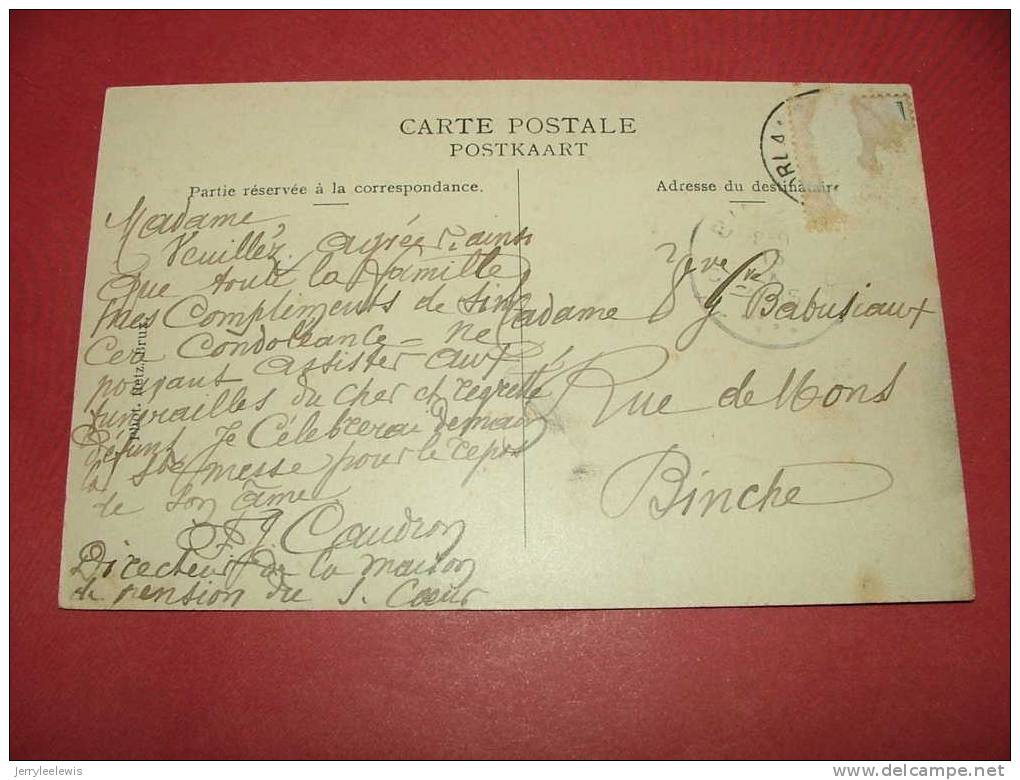 CARTE POSTALE
POSTKAART
Partie réservée à la correspondance.
Adresse du destinataire
Madame,
Veuillez agréer ainsi
que toute la famille
mes compliments de sin
cer condoléance - ne
pouvant assister aux
funérailles du cher et regretté
défunt, je célébrerai demain
la Ste messe pour le repos
de son âme
Caudron
Directeur de la maison
de pension du S. Coeur
Madame Vve
Babusiaux
Rue de Mons
Binche
Phot. Metz. Brux.
jerryleelewis
delcampe.net